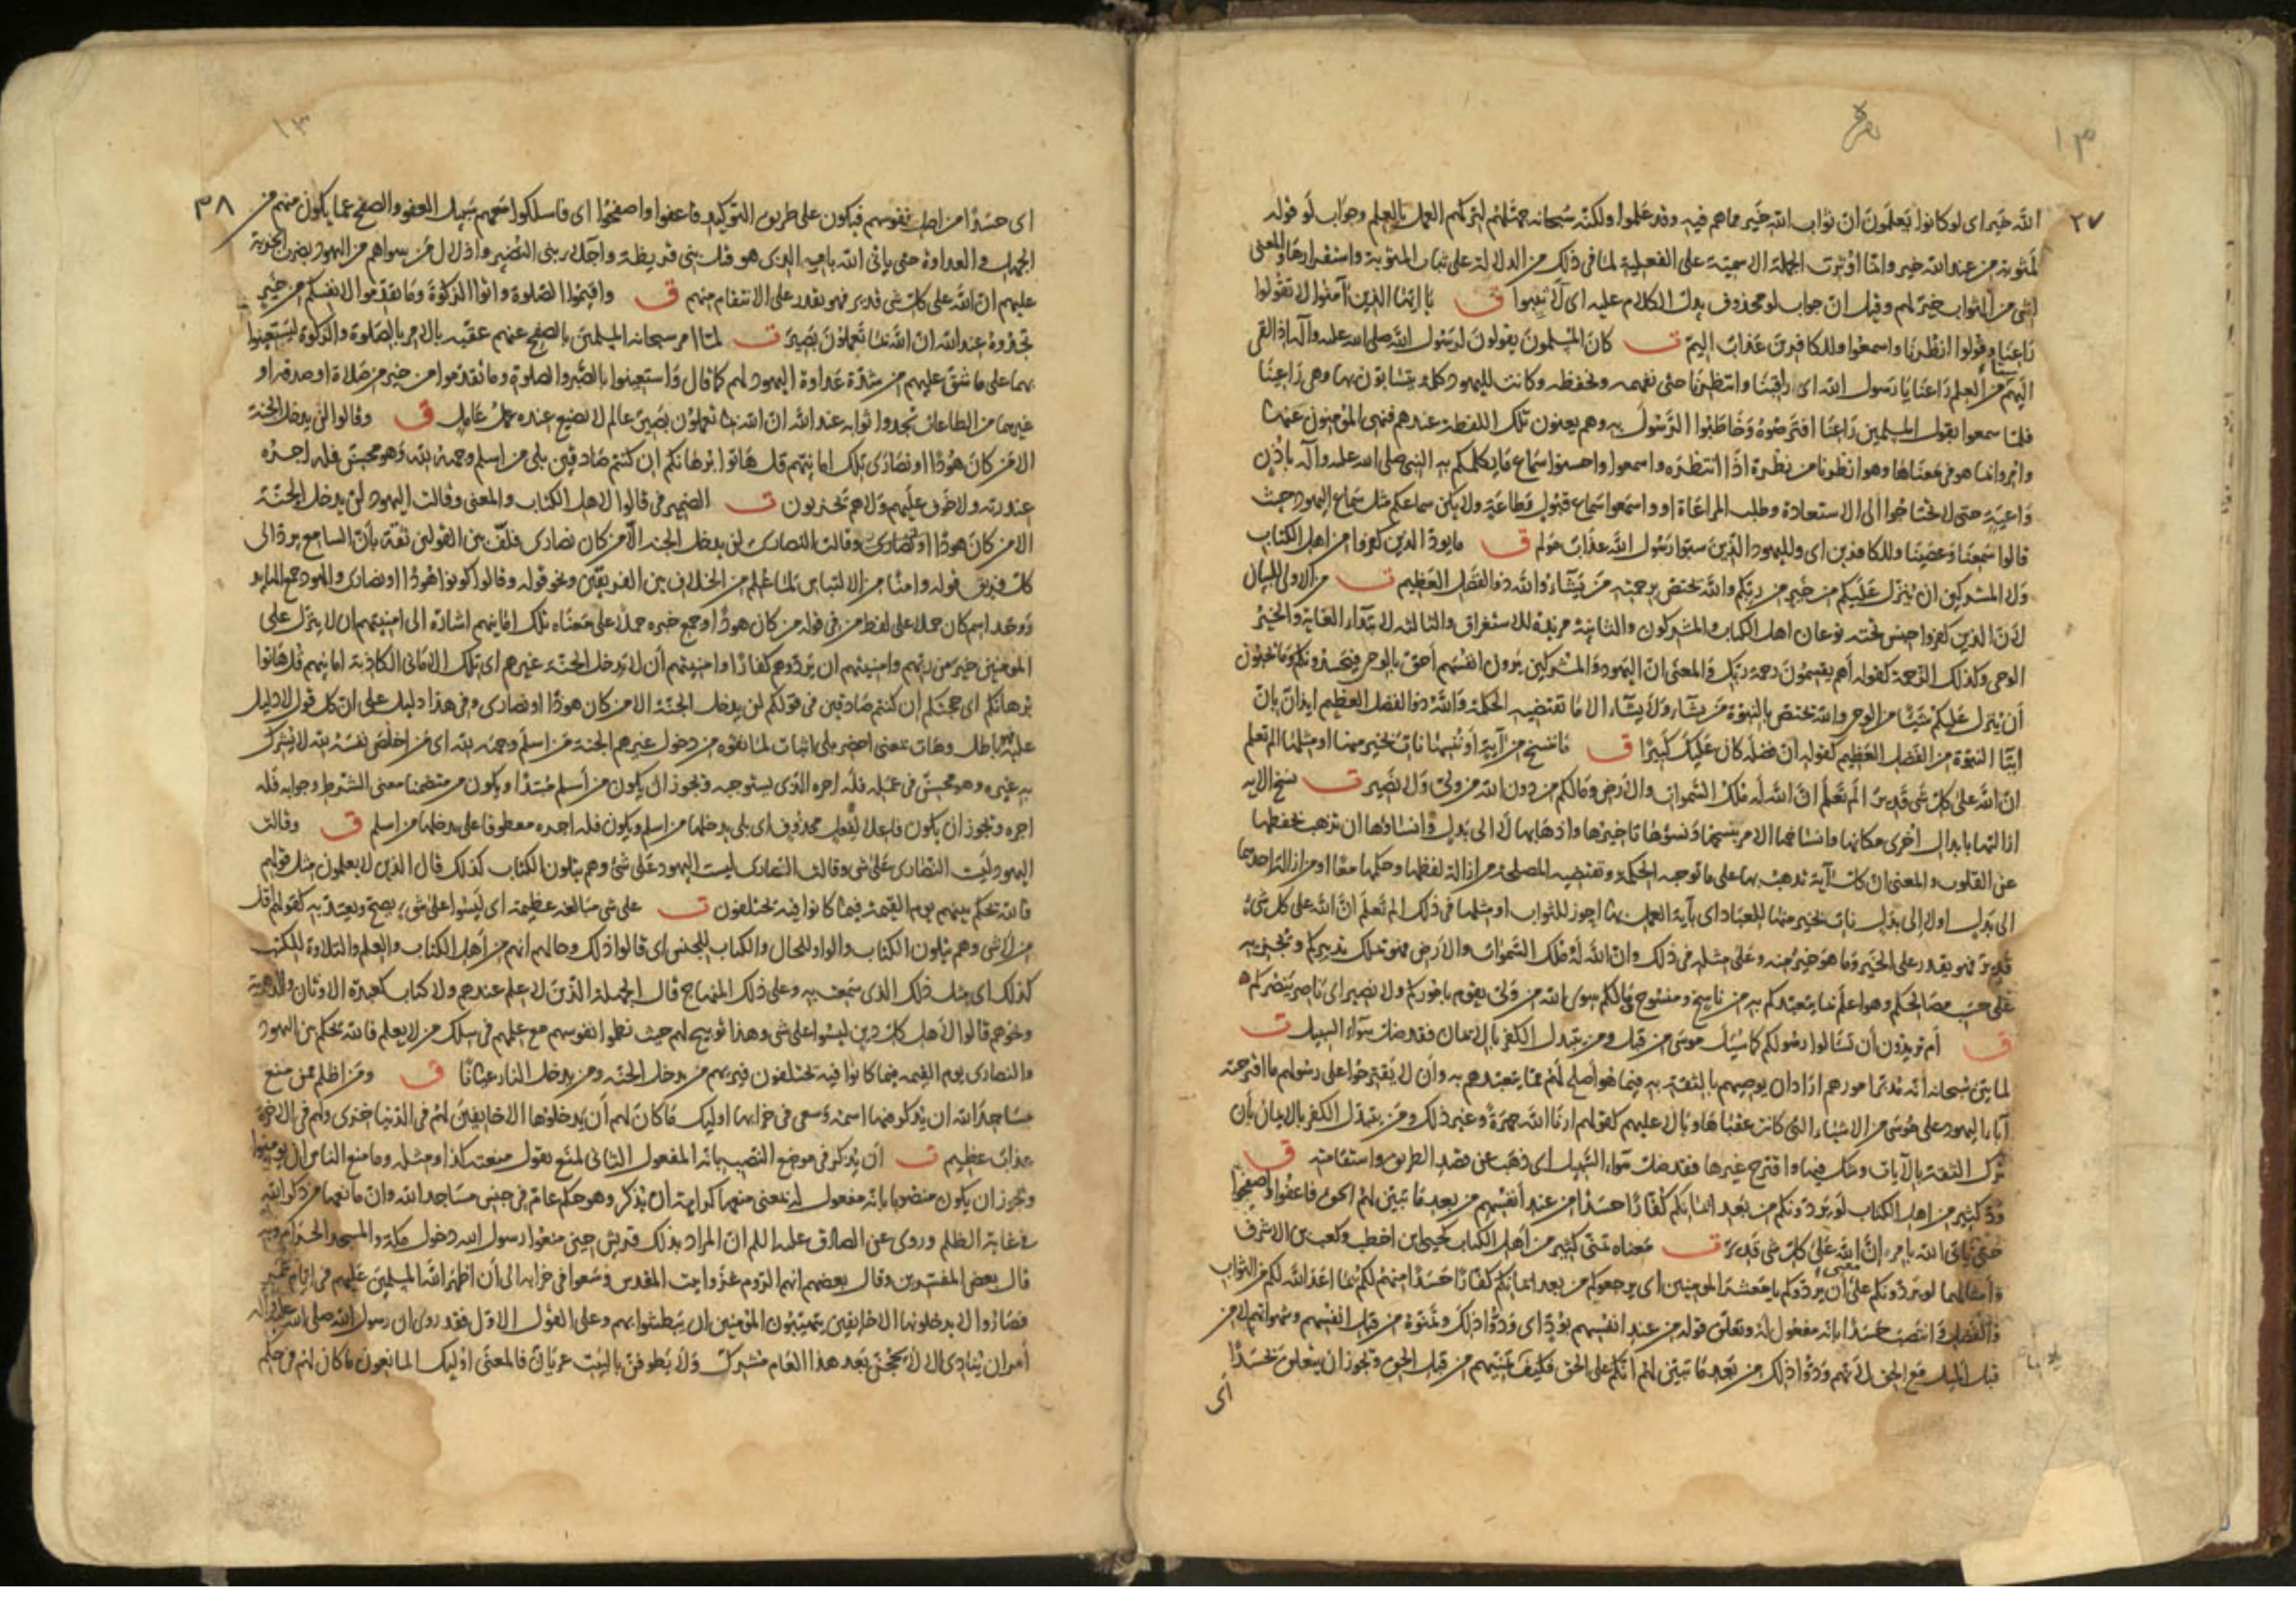 ١٣
٢٧
الله خير اى لو كانوا يعلمون ان ثواب الله خير مما هم فيه وقد علموا ولكنه سبحانه جهّلهم لتركهم العمل بالعلم وجواب لو قوله
لمثوبة من عند الله خير وانما اوثرت الجملة الاسمية على الفعلية لما فى ذلك من الدلالة على ثبات المثوبة واستقرارها والمعنى
لشئ من الثواب خير لهم وقيل ان جواب لو محذوف يدل الكلام عليه اى لاثيبوا ق يا ايها الذين آمنوا لا تقولوا
راعنا وقولوا انظرنا واسمعوا وللكافرين عذاب اليم ت كان المسلمون يقولون لرسول الله صلى الله عليه وآله اذا القى
اليهم من العلم راعنا يا رسول الله اى راقبنا وانتظرنا حتى نفهمه ونحفظه وكانت لليهود كلمة يتسابون بها وهى راعينا
فلما سمعوا بقول المسلمين راعنا افترصوه وخاطبوا الرسول به وهم يعنون تلك اللفظة عندهم فنهى المؤمنون عنها
وامروا بما هو فى معناها وهو انظرنا من نظره اذا انتظره واسمعوا واحسنوا سماع ما يكلمكم به النبى صلى الله عليه وآله بآذان
واعية حتى لا تحتاجوا الى الاستعادة وطلب المراعاة او واسمعوا سماع قبول وطاعة ولا يكن سماعكم مثل سماع اليهود حيث
قالوا سمعنا وعصينا وللكافرين اى ولليهود الذين سبوا رسول الله عذاب مولم ق ما يود الذين كفروا من اهل الكتاب
ولا المشركين ان ينزل عليكم من خير من ربكم والله يختص برحمته من يشاء والله ذو الفضل العظيم ت من الاولى للبيان
لان الذين كفروا جنس تحته نوعان اهل الكتاب والمشركون والثانية مزيدة للاستغراق والثالثة لابتداء الغاية والخير
الوحى وكذلك الرحمة كقوله اهم يقسمون رحمة ربك والمعنى ان اليهود والمشركين يرون انفسهم احق بالوحى فيحسدونكم وما يحبون
ان ينزل عليكم شيئا من الوحى والله يختص بالنبوة من يشاء ولا يشاء الا ما تقتضيه الحكمة والله ذو الفضل العظيم ايذان بان
ايتاء النبوة من الفضل العظيم كقوله ان فضله كان عليك كبيرا ق ما ننسخ من آية او ننسها نات بخير منها او مثلها الم تعلم
ان الله على كل شئ قدير الم تعلم ان الله له ملك السموات والارض وما لكم من دون الله من ولى ولا نصير ت نسخ الاية
ازالتها بابدال اخرى مكانها وانساخها الامر بنسخها ونسؤها تاخيرها واذهابها لا الى بدل وانساؤها ان تذهب بحفظها
عن القلوب والمعنى ان كل آية نذهب بها على ما توجبه الحكمة وتقتضيه المصلحة من ازالة لفظها وحكمها معا او من ازالة احدهما
الى بدل او لا الى بدل نات بخير منها للعباد اى بآية العمل بها احوز للثواب او مثلها فى ذلك الم تعلم ان الله على كل شئ
قدير فهو يقدر على الخير وما هو خير منه وعلى مثله فى ذلك وان الله له ملك السموات والارض فهو يملك تدبيركم ويجريه
على حسب مصالحكم وهو اعلم بما يتعبدكم به من ناسخ ومنسوخ وما لكم سوى الله من ولى يقوم باموركم ولا نصير اى ناصر ينصركم
ق ام تريدون ان تسالوا رسولكم كما سئل موسى من قبل ومن يتبدل الكفر بالايمان فقد ضل سواء السبيل ت
لما بين سبحانه انه مدبر امورهم اراد ان يوصيهم بالثقة به فيما هو اصلح لهم مما يتعبدهم به وان لا يقترحوا على رسولهم ما اقترحته
آباء اليهود على موسى من الاشياء التى كانت عقباها وبالا عليهم كقولهم ارنا الله جهرة وغير ذلك ومن يتبدل الكفر بالايمان بان
ترك الثقة بالآيات وشك فيها واقترح غيرها فقد ضل سواء السبيل اى ذهب عن قصد الطريق واستقامته ق
ود كثير من اهل الكتاب لو يردونكم من بعد ايمانكم كفارا حسدا من عند انفسهم من بعد ما تبين لهم الحق فاعفوا واصفحوا
حتى ياتى الله بامره ان الله على كل شئ قدير ت معناه تمنى كثير من اهل الكتاب كحيى ابن اخطب وكعب بن الاشرف
وامثالهما لو يردونكم معنى ان يردوكم يا معشر المومنين اى يرجعوكم من بعد ايمانكم كفارا حسدا منهم لكم بما اعد الله لكم من الثواب
والفضل وانتصب حسدا بانه مفعول له وتعلق قوله من عند انفسهم بود اى ودوا ذلك وتمنوه من قبل انفسهم وشهواتهم لا من
قبل الميل مع الحق لانهم ودوا ذلك من بعد ما تبين لهم انكم على الحق فكيف تمنيهم من قبل الحق ويجوز ان يتعلق بحسدا
اى
١٣
٣٨
اى حسدا من اصل نفوسهم فيكون على طريق التوكيد فاعفوا واصفحوا اى فاسلكوا معهم سبيل العفو والصفح عما يكون منهم من
الجهل والعداوة حتى ياتى الله بامره الذى هو قتل بنى قريظة واجلاء بنى النضير واذلال من سواهم من اليهود بضرب الجزية
عليهم ان الله على كل شئ قدير فهو يقدر على الانتقام منهم ق واقيموا الصلوة واتوا الزكوة وما تقدموا لانفسكم من خير
تجدوه عند الله ان الله بما تعملون بصير ت لما امر سبحانه المسلمين بالصفح عنهم عقبه بالامر بالصلوة والزكوة ليستعينوا
بهما على ما شق عليهم من شدة عداوة اليهود لهم كما قال واستعينوا بالصبر والصلوة وما تقدموا من خير من صلاة او صدقة او
غيرهما من الطاعات تجدوا ثوابه عند الله ان الله بما تعملون بصير عالم لا يضيع عنده عمل عامل ق وقالوا لن يدخل الجنة
الا من كان هودا او نصارى تلك امانيهم قل هاتوا برهانكم ان كنتم صادقين بلى من اسلم وجهه لله وهو محسن فله اجره
عند ربه ولا خوف عليهم ولا هم يحزنون ت الضمير فى قالوا لاهل الكتاب والمعنى وقالت اليهود لن يدخل الجنة
الا من كان هودا او نصارى وقالت النصارى لن يدخل الجنة الا من كان نصارى فلفّ بين القولين ثقة بان السامع يرد الى
كل فريق قوله وامنا من الالتباس لما علم من الخلاف بين الفريقين ونحو قوله وقالوا كونوا هودا او نصارى والهود جمع الهائد
ووحد اسم كان حملا على لفظ من فى قوله من كان هودا وجمع خبره حملا على معناه تلك امانيهم اشارة الى امنيتهم ان لا ينزل على
المومنين خير من ربهم وامنيتهم ان يردوهم كفارا وامنيتهم ان لا يدخل الجنة غيرهم اى تلك الامانى الكاذبة امانيهم قل هاتوا
برهانكم اى حجتكم ان كنتم صادقين فى قولكم لن يدخل الجنة الا من كان هودا او نصارى وفى هذا دليل على ان كل قول لا دليل
عليه باطل وهات بمعنى احضر بلى اثبات لما نفوه من دخول غيرهم الجنة من اسلم وجهه لله اى من اخلص نفسه لله لا يشرك
به غيره وهو محسن فى عمله فله اجره الذى يستوجبه ويجوز ان يكون من اسلم مبتدا ويكون من متضمنا معنى الشرط وجوابه فله
اجره ويجوز ان يكون فاعلا لفعل محذوف اى بلى يدخلها من اسلم ويكون فله اجره معطوفا على يدخلها من اسلم ق وقالت
اليهود ليست النصارى على شئ وقالت النصارى ليست اليهود على شئ وهم يتلون الكتاب كذلك قال الذين لا يعلمون مثل قولهم
فالله يحكم بينهم يوم القيمة فيما كانوا فيه يختلفون ت على شئ مبالغة عظيمة اى ليسوا على شئ يصح ويعتد به كقولهم اقل
من لا شئ وهم يتلون الكتاب والواو للحال والكتاب للجنس اى قالوا ذلك وحالهم انهم من اهل الكتاب والعلم والتلاوة للكتب
كذلك اى مثل ذلك الذى سمعت به وعلى ذلك المنهاج قال الجهلة الذين لا علم عندهم ولا كتاب كعبدة الاوثان والدهرية
ونحوهم قالوا لاهل كل دين ليسوا على شئ وهذا توبيخ لهم حيث نظموا انفوسهم مع علمهم فى سلك من لا يعلم فالله يحكم بين اليهود
والنصارى يوم القيمة فيما كانوا فيه يختلفون فيريهم من يدخل الجنة ومن يدخل النار عيانا ق ومن اظلم ممن منع
مساجد الله ان يذكر فيها اسمه وسعى فى خرابها اوليك ما كان لهم ان يدخلوها الا خايفين لهم فى الدنيا خزى ولهم فى الاخرة
عذاب عظيم ت ان يذكر فى موضع النصب بانه المفعول الثانى لمنع تقول منعته كذا ومثله وما منع الناس ان يومنوا
ويجوز ان يكون منصوبا بانه مفعول له بمعنى منعها كراهة ان يذكر وهو حكم عام فى جنس مساجد الله وان مانعها من ذكر الله
فى غاية الظلم وروى عن الصادق عليه السلم ان المراد بذلك قريش حين منعوا رسول الله دخول مكة والمسجد الحرام وبه
قال بعض المفسرين وقال بعضهم انهم الروم غزوا بيت المقدس وسعوا فى خرابه الى ان اظهر الله المسلمين عليهم فى ايام عمر
فصاروا لا يدخلونها الا خايفين يتهيبون المؤمنين ان يبطشوا بهم وعلى القول الاول فقد روى ان رسول الله صلى الله عليه وآله
امر ان ينادى الا لا يحجن بعد هذا العام مشرك ولا يطوفن بالبيت عريان فالمعنى اوليك المانعون ما كان لهم فى حكم